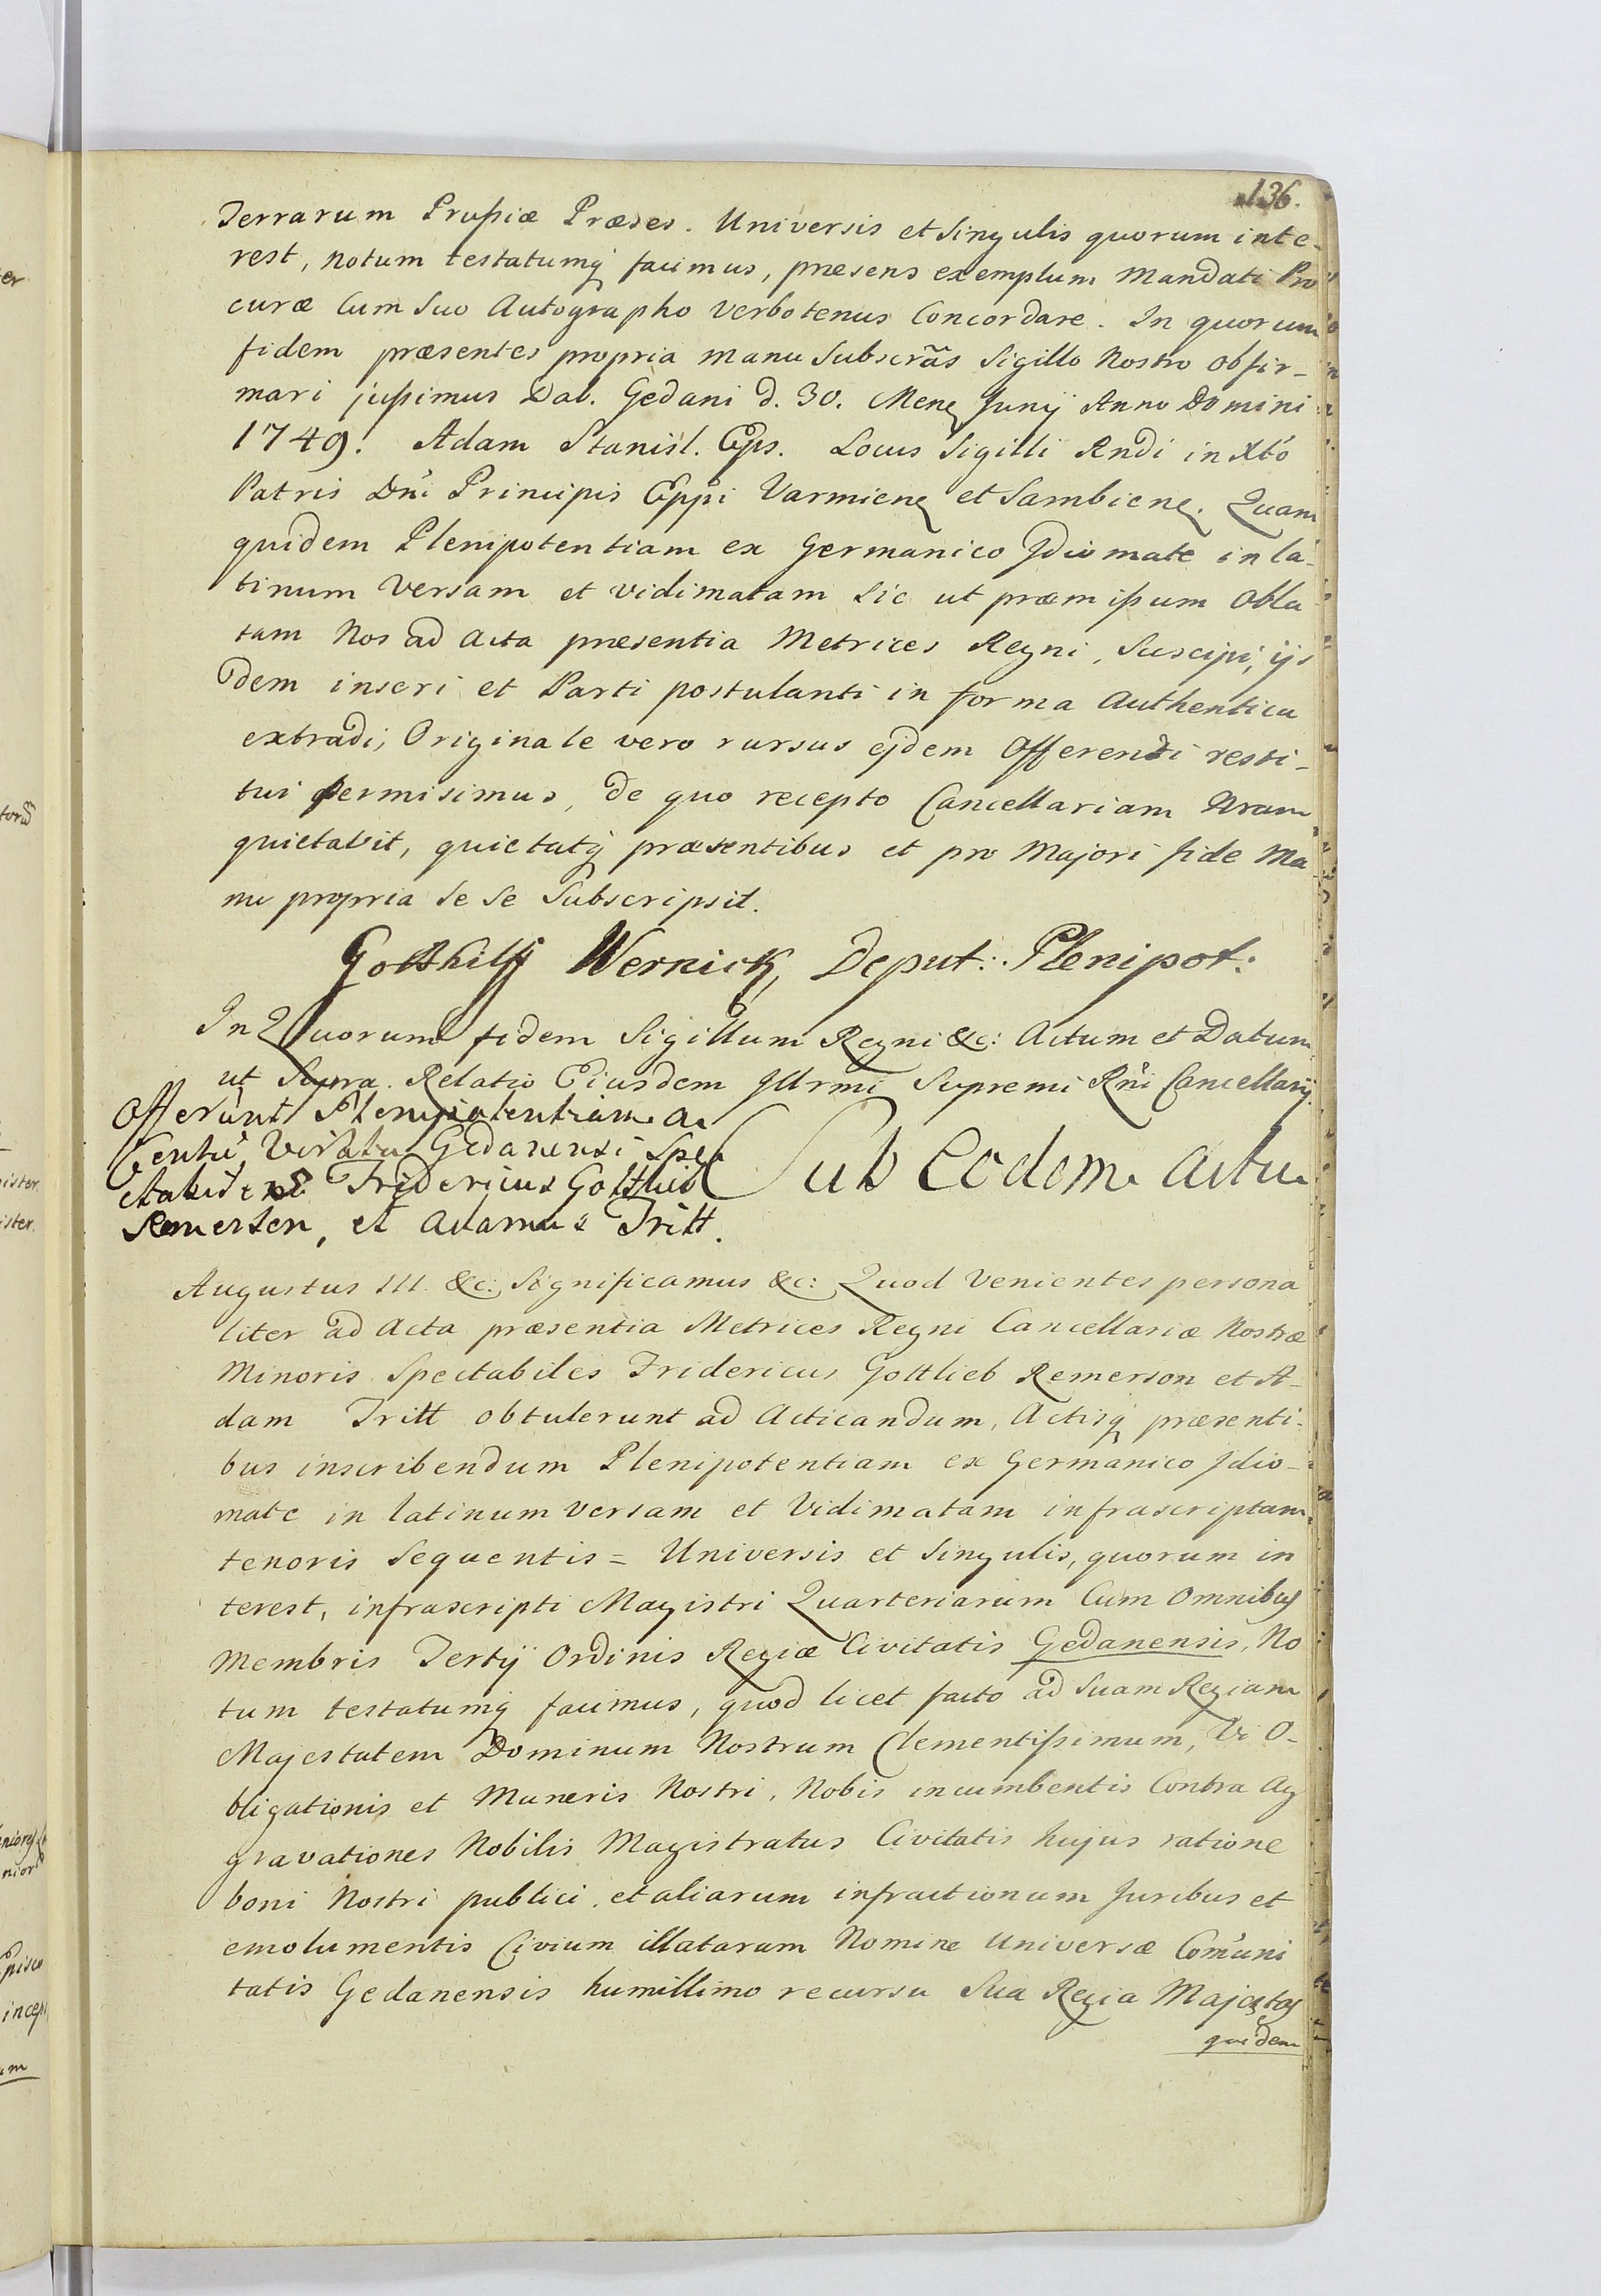 136.
Terrarum Prussiæ Præses. Universis et Singulis quorum inte-
rest, notum testatumq facimus, præsens exemplum Mandati Pro
curæ Cum Suo Autographo Verbotenus Concordare. In quorum
fidem præsentes propria manu Subscrãs Sigillo Nostro obfir-
mari jussimus Dab. Gedani d. 30. Mens Junÿ Anno Domini
1749. Adam Stanisl. Eps. Locus Sigilli Rndi in Xto
Patris Dni Principis Eppi Varmiens et Sambiens. Quam
quidem Plenipotentiam ex Germanico Jdiomate in la-
tinum Versam et vidimatam Sic ut præmissum obla
tam Nos ad Acta præsentia Metrices Regni, Suscipi, ijs
dem inseri et Parti postulanti in forma Authentica
extradi, Originale vero rursus ejdem Offerenti resti-
tui permisimus, de quo recepto Cancellariam Nram
quietavit, quietatq præsentibus et pro Majori fide Ma
nu propria Se Se Subscripsit.
Gotthilff Wernick, Deput: Plenipot:
In Quorum fidem Sigillum Regni &c: Actum et Datum
ut Supra. Relatio Eiusdem Jllrmi Supremi Rni Cancellarij.
Offerunt Plenipotentiam a
Sub Eodem Actu
Gedanensi Spe
Fridericus Gottlieb
Remersen, et Adamus Tritt.
Augustus III. &c: Significamus &c: Quod Venientes persona
liter ad Acta præsentia Metrices Regni Cancellariæ Nostræ
Minoris Spectabiles Fridericus Gottlieb Remerson et A-
dam Tritt obtulerunt ad Acticandum, Actisq præsenti-
bus inscribendum Plenipotentiam ex Germanico Jdio-
mate in latinum versam et Vidimatam infrascriptam
tenoris Sequentis = Universis et Singulis, quorum in
terest, infrascripti Magistri Quarteriarum Cum Omnibus
Membris Tertÿ Ordinis Regiæ Civitatis Gedanensis, No
tum testatumq facimus, quod licet facto ad Suam Regiam
Majestatem Dominum Nostrum Clementissimum, Vi O-
bligationis et Muneris Nostri, Nobis incumbentis Contra Ag
gravationes Nobilis Magistratus Civitatis hujus ratione
boni Nostri publici, et aliarum infractionum Juribus et
emolumentis Civium illatarum Nomine Universæ Comuni
tatis Gedanensis humillimo recursu Sua Regia Majestas
quidem